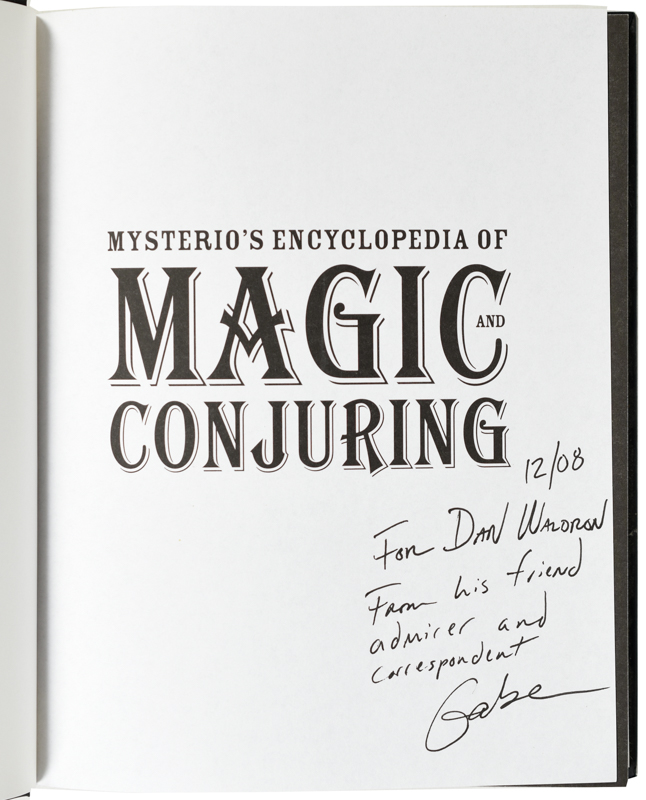 MYSTERIO'S ENCYCLOPEDIA OF
MAGIC AND
CONJURING
12/08
For DAN WALDRON
From his friend
admirer and
correspondent
Gabe